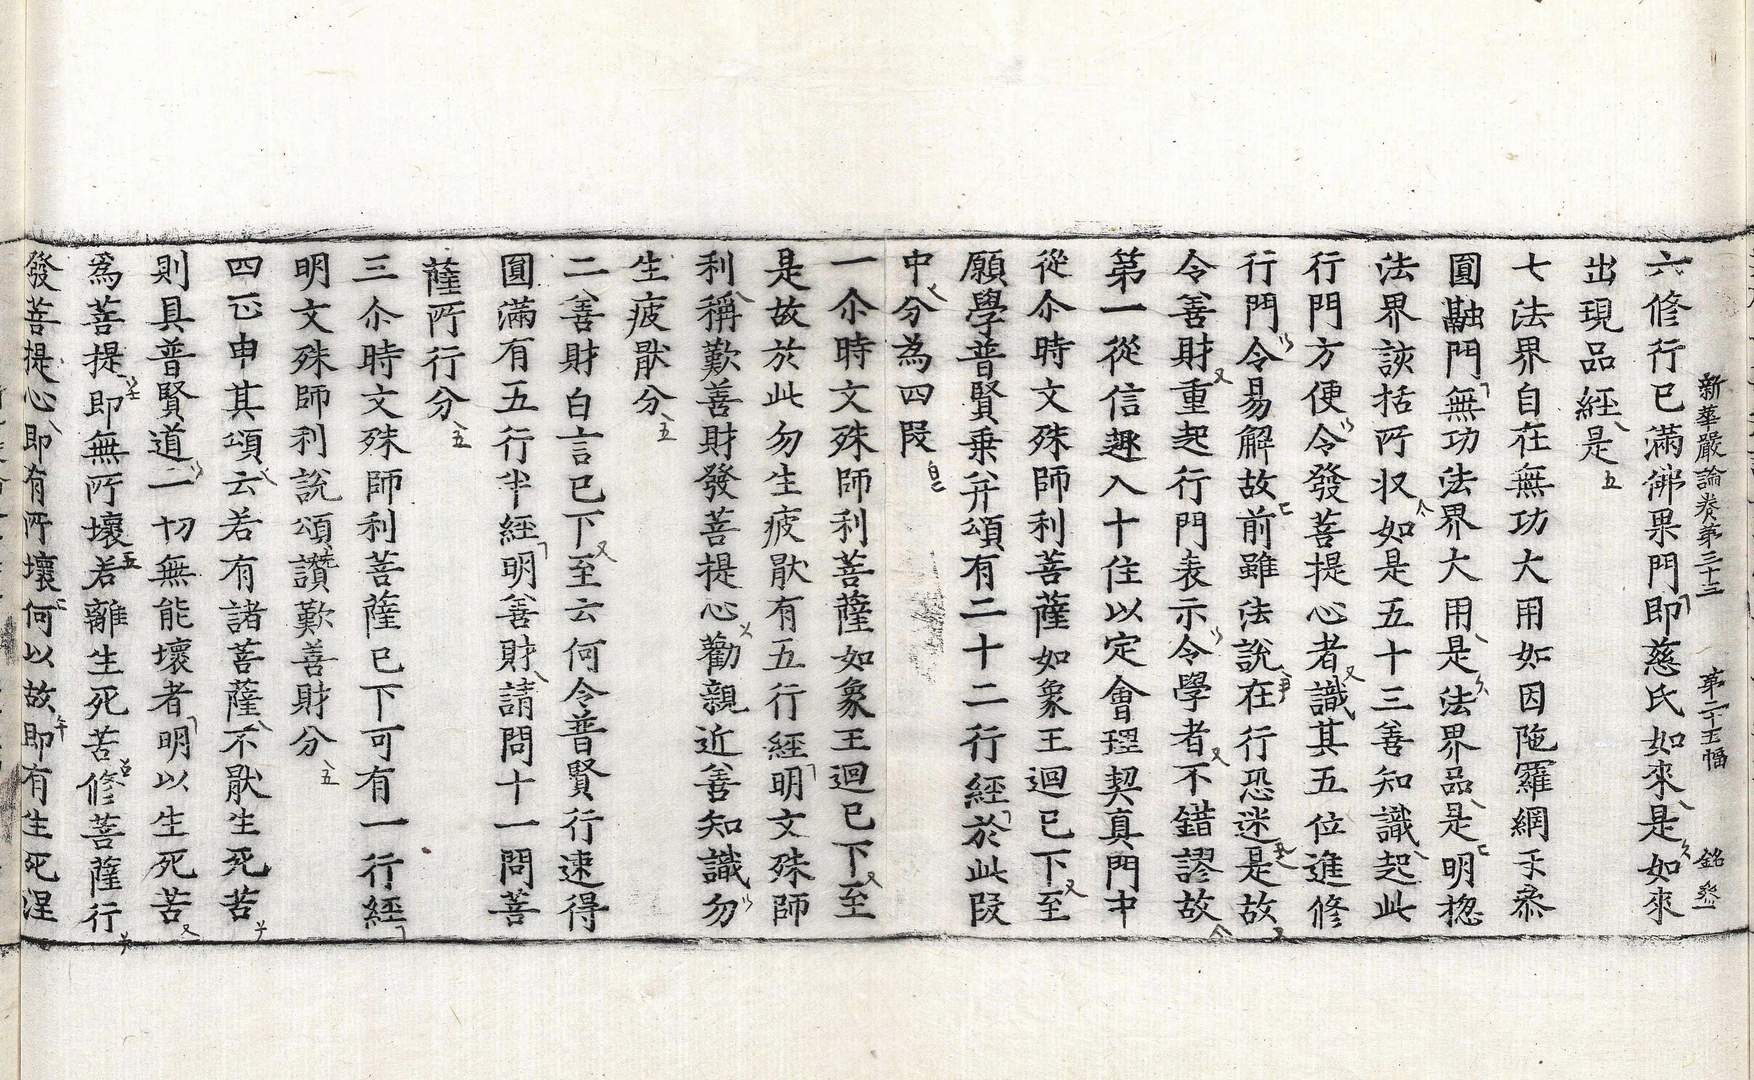 六修行已滿佛果門即慈氏如來是如來
新華嚴論卷第三十三 第二十五幅 銘
出現品經是
七法界自在無功大用如因陁羅網子叅
圓融門無功法界大用是法界品是明揔
法界該括所収如是五十三善知識起此
行門方便令發菩提心者識其五位進修
行門令易解故前雖法說在行恐迷是故
令善財重起行門表示令學者不錯謬故
第一從信趣入十住以定會理契真門中
從尒時文殊師利菩薩如象王迴已下至
願學普賢乗并頌有二十二行經於此段
中分為四段
一尒時文殊師利菩薩如象王迴已下至
是故於此勿生疲猒有五行經明文殊師
利稱歎善財發菩提心勸親近善知識勿
生疲猒分
二善財白言已下至云何令普賢行速得
圓滿有五行半經明善財請問十一問菩
薩所行分
三尒時文殊師利菩薩已下可有一行經
明文殊師利說頌讚歎善財分
四正申其頌云若有諸菩薩不猒生死苦
則具普賢道一切無能壞者明以生死苦
為菩提即無所壞若離生死苦修菩薩行
發菩提心即有所壞何以故即有生死涅